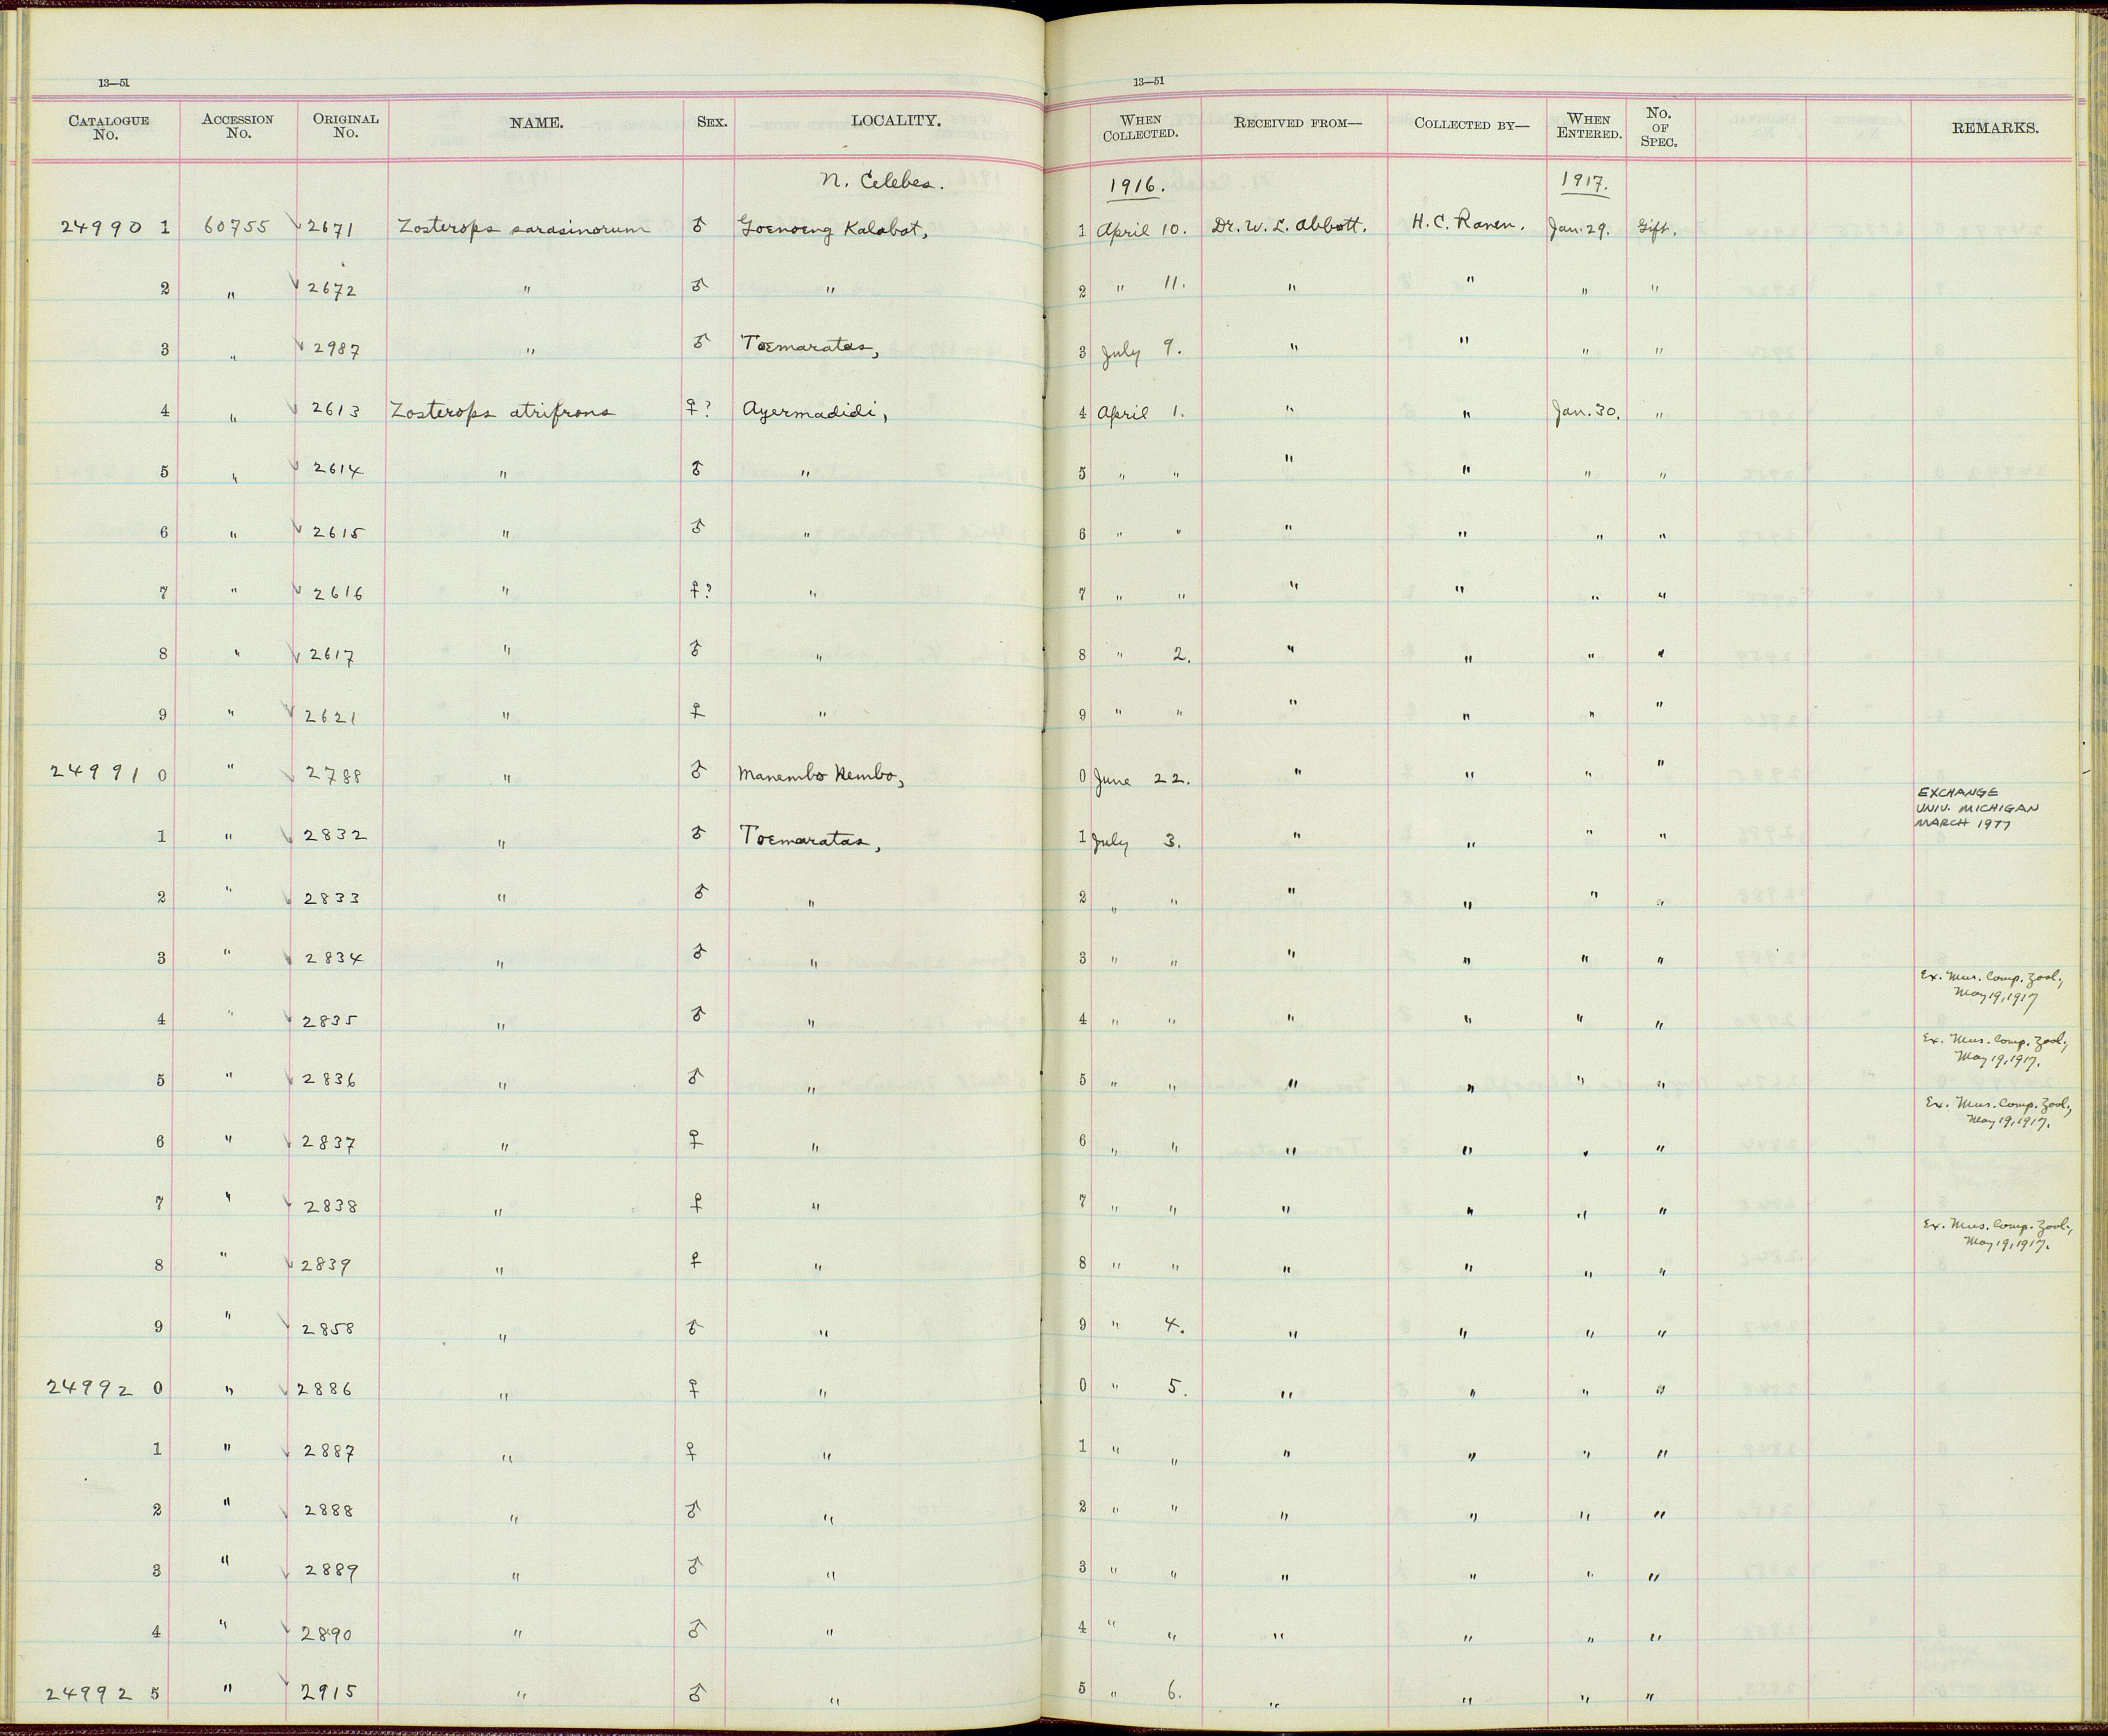 13—51
13—51
CATALOGUE No. ACCESSION No. ORIGINAL No. NAME. SEX. LOCALITY. WHEN COLLECTED. RECEIVED FROM— COLLECTED BY— WHEN ENTERED. No. OF SPEC. REMARKS.
N. Celebes. 1916. 1917.
24990 1 60755 2671 Zosterops sarasinorum ♂ Goenoeng Kalabat, 1 April 10. Dr. W. L. Abbott. H. C. Raven. Jan. 29. Gift.
2 " 2672 " ♂ " 2 " 11. " " " "
3 " 2987 " ♂ Toemaratas, 3 July 9. " " " "
4 " 2613 Zosterops atrifrons ♀? Ayermadidi, 4 April 1. " " Jan. 30. "
5 " 2614 " ♂ " 5 " " " " " "
6 " 2615 " ♂ " 6 " " " " " "
7 " 2616 " ♀? " 7 " " " " " "
8 " 2617 " ♂ " 8 " 2. " " " "
9 " 2621 " ♀ " 9 " " " " " "
24991 0 " 2788 " ♂ Manembo Nembo, 0 June 22. " " " "
1 " 2832 " ♂ Toemaratas, 1 July 3. " " " " EXCHANGE UNIV. MICHIGAN MARCH 1977
2 " 2833 " ♂ " 2 " " " " " "
3 " 2834 " ♂ " 3 " " " " " "
4 " 2835 " ♂ " 4 " " " " " " Ex. Mus. Comp. Zool., May 19, 1917
5 " 2836 " ♂ " 5 " " " " " " Ex. Mus. Comp. Zool., May 19, 1917.
6 " 2837 " ♀ " 6 " " " " " " Ex. Mus. Comp. Zool., May 19, 1917.
7 " 2838 " ♀ " 7 " " " " " "
8 " 2839 " ♀ " 8 " " " " " " Ex. Mus. Comp. Zool., May 19, 1917.
9 " 2858 " ♂ " 9 " 4. " " " "
24992 0 " 2886 " ♀ " 0 " 5. " " " "
1 " 2887 " ♀ " 1 " " " " " "
2 " 2888 " ♂ " 2 " " " " " "
3 " 2889 " ♂ " 3 " " " " " "
4 " 2890 " ♂ " 4 " " " " " "
24992 5 " 2915 " ♂ " 5 " 6. " " " "